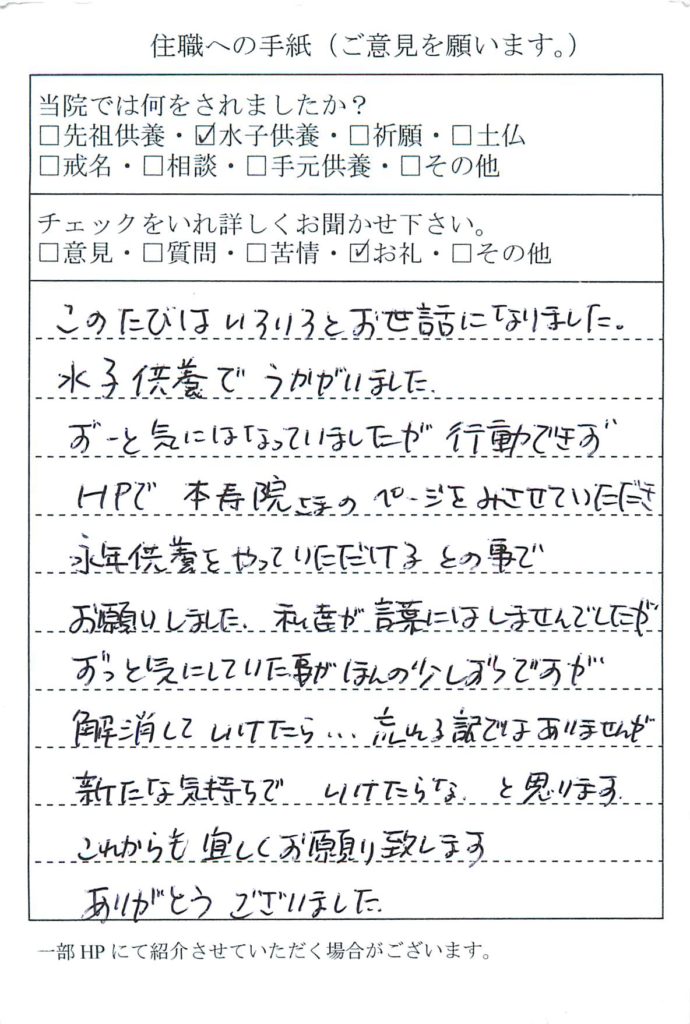 住職への手紙（ご意見を願います。）
当院では何をされましたか？
□先祖供養・☑水子供養・□祈願・□土仏
□戒名・□相談・□手元供養・□その他
チェックをいれ詳しくお聞かせ下さい。
□意見・□質問・□苦情・☑お礼・□その他
このたびはいろいろとお世話になりました。
水子供養で うかがいました.
ずーと気にはなっていましたが 行動できず
HPで 本寿院さまの ページをみさせていただき
永年供養をやっていただける との事で
お願いしました. 私達が言葉にはしませんでしたが
ずっと気にしていた事がほんの少しずつですが
解消して いけたら… 忘れる訳ではありませんが
新たな気持ちで いけたらな. と思います.
これからも 宜しくお願い致します
ありがとう ございました.
一部HPにて紹介させていただく場合がございます。